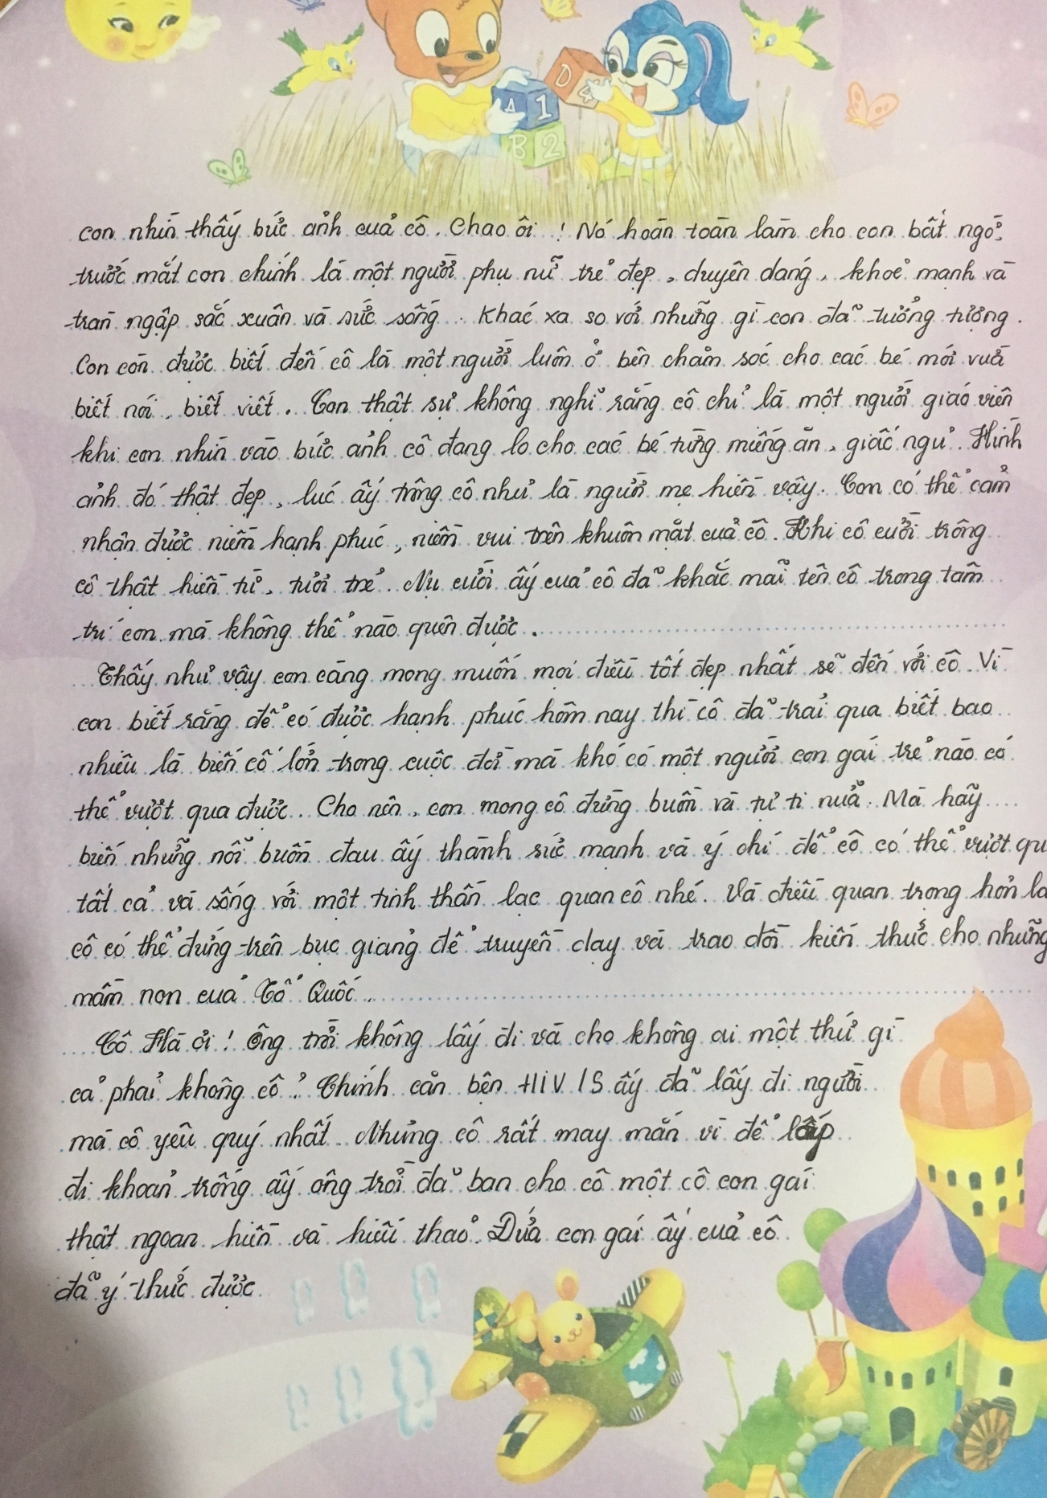 D 4
A 1
B 2
con nhìn thấy bức ảnh của cô. Chao ôi! Nó hoàn toàn làm cho con bất ngờ.
trước mắt con chính là một người phụ nữ trẻ đẹp, duyên dáng, khoẻ mạnh và
tràn ngập sắc xuân và sức sống. Khác xa so với những gì con đã tưởng tượng.
Con còn được biết đến cô là một người luôn ở bên chăm sóc cho các bé mới vừa
biết nói, biết viết. Con thật sự không nghĩ rằng cô chỉ là một người giáo viên
khi con nhìn vào bức ảnh cô đang lo cho các bé từng miếng ăn, giấc ngủ. Hình
ảnh đó thật đẹp, lúc ấy trông cô như là người mẹ hiền vậy. Con có thể cảm
nhận được niềm hạnh phúc, niềm vui trên khuôn mặt của cô. Khi cô cười trông
cô thật hiền từ, tươi trẻ. Nụ cười ấy của cô đã khắc mãi tên cô trong tâm
trí con mà không thể nào quên được.
Thấy như vậy con càng mong muốn mọi điều tốt đẹp nhất sẽ đến với cô. Vì
con biết rằng để có được hạnh phúc hôm nay thì cô đã trải qua biết bao
nhiêu là biến cố lớn trong cuộc đời mà khó có một người con gái trẻ nào có
thể vượt qua được. Cho nên, con mong cô đừng buồn và tự ti nữa. Mà hãy
biến những nỗi buồn đau ấy thành sức mạnh và ý chí để cô có thể vượt qu
tất cả và sống với một tinh thần lạc quan cô nhé. Và điều quan trọng hơn là
cô có thể đứng trên bục giảng để truyền dạy và trao dồi kiến thức cho những
mầm non của Tổ Quốc.
Cô Hà ơi! Ông trời không lấy đi và cho không ai một thứ gì
cả phải không cô? Chính căn bệnh HIV/S ấy đã lấy đi người
mà cô yêu quý nhất. Nhưng cô rất may mắn vì để lấp
đi khoản trống ấy ông trời đã ban cho cô một cô con gái
thật ngoan hiền và hiếu thảo. Đứa con gái ấy của cô
đã ý thức được